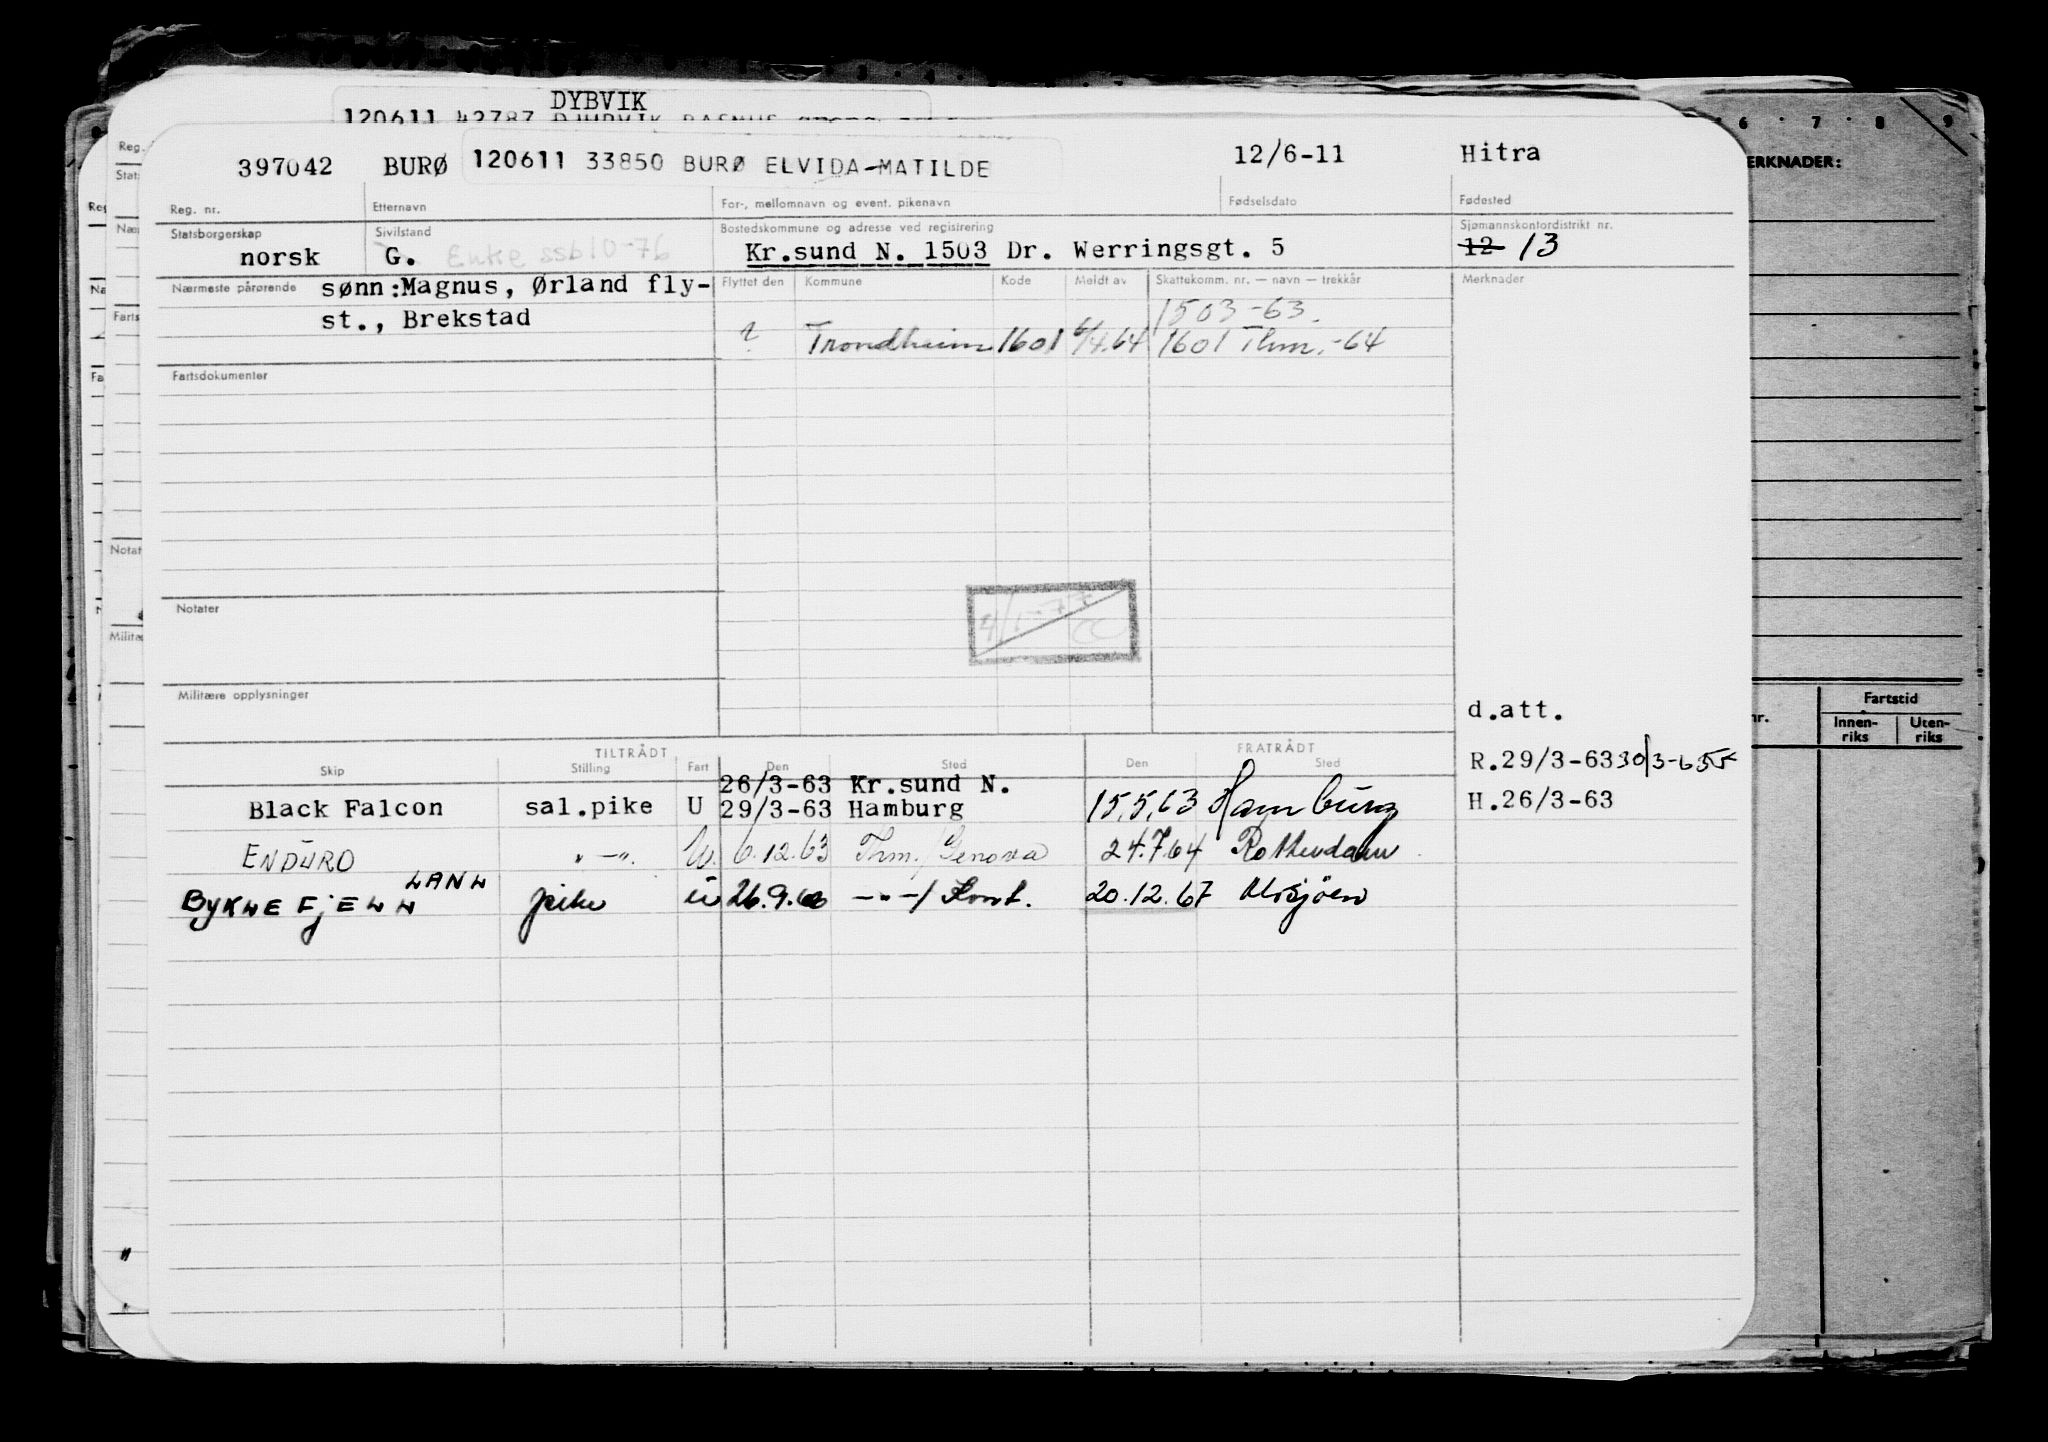 DYBVIK
120611 42787
6 7 8 9
ERKNADER:
397042 BURØ 120611 33850 BURØ ELVIDA-MATILDE 12/6-11 Hitra
Reg. nr. Etternavn For-, mellomnavn og event. pikenavn Fødselsdato Fødested
Statsborgerskap Sivilstand Bostedskommune og adresse ved registrering Sjømannskontordistrikt nr.
norsk G. Enke ssb 10-76 Kr.sund N. 1503 Dr. Werringsgt. 5 12 13
Nærmeste pårørende sønn:Magnus, Ørland fly- Flyttet den Kommune Kode Meldt av Skattekomm. nr. — navn — trekkår Merknader
st., Brekstad 1503-63.
? Trondheim 1601 6/4.64 1601 Thm.-64
Fartsdokumenter
Notater 4/1-77
Militære opplysninger
d.att.
TILTRÅDT FRATRÅDT
Skip Stilling Fart Den Sted Den Sted
R.29/3-63 30/3-65
26/3-63 Kr.sund N.
Black Falcon sal.pike U 29/3-63 Hamburg 15.5.63 Hamburg H.26/3-63
ENDURO " —". U. 6.12.63 Thm./Genova 24.7.64 Rotterdam
BYKLEFJELL pike U 26.9. —"—/ 20.12.67 Mosjöen
Fartstid
Innen-
riks
Uten-
riks